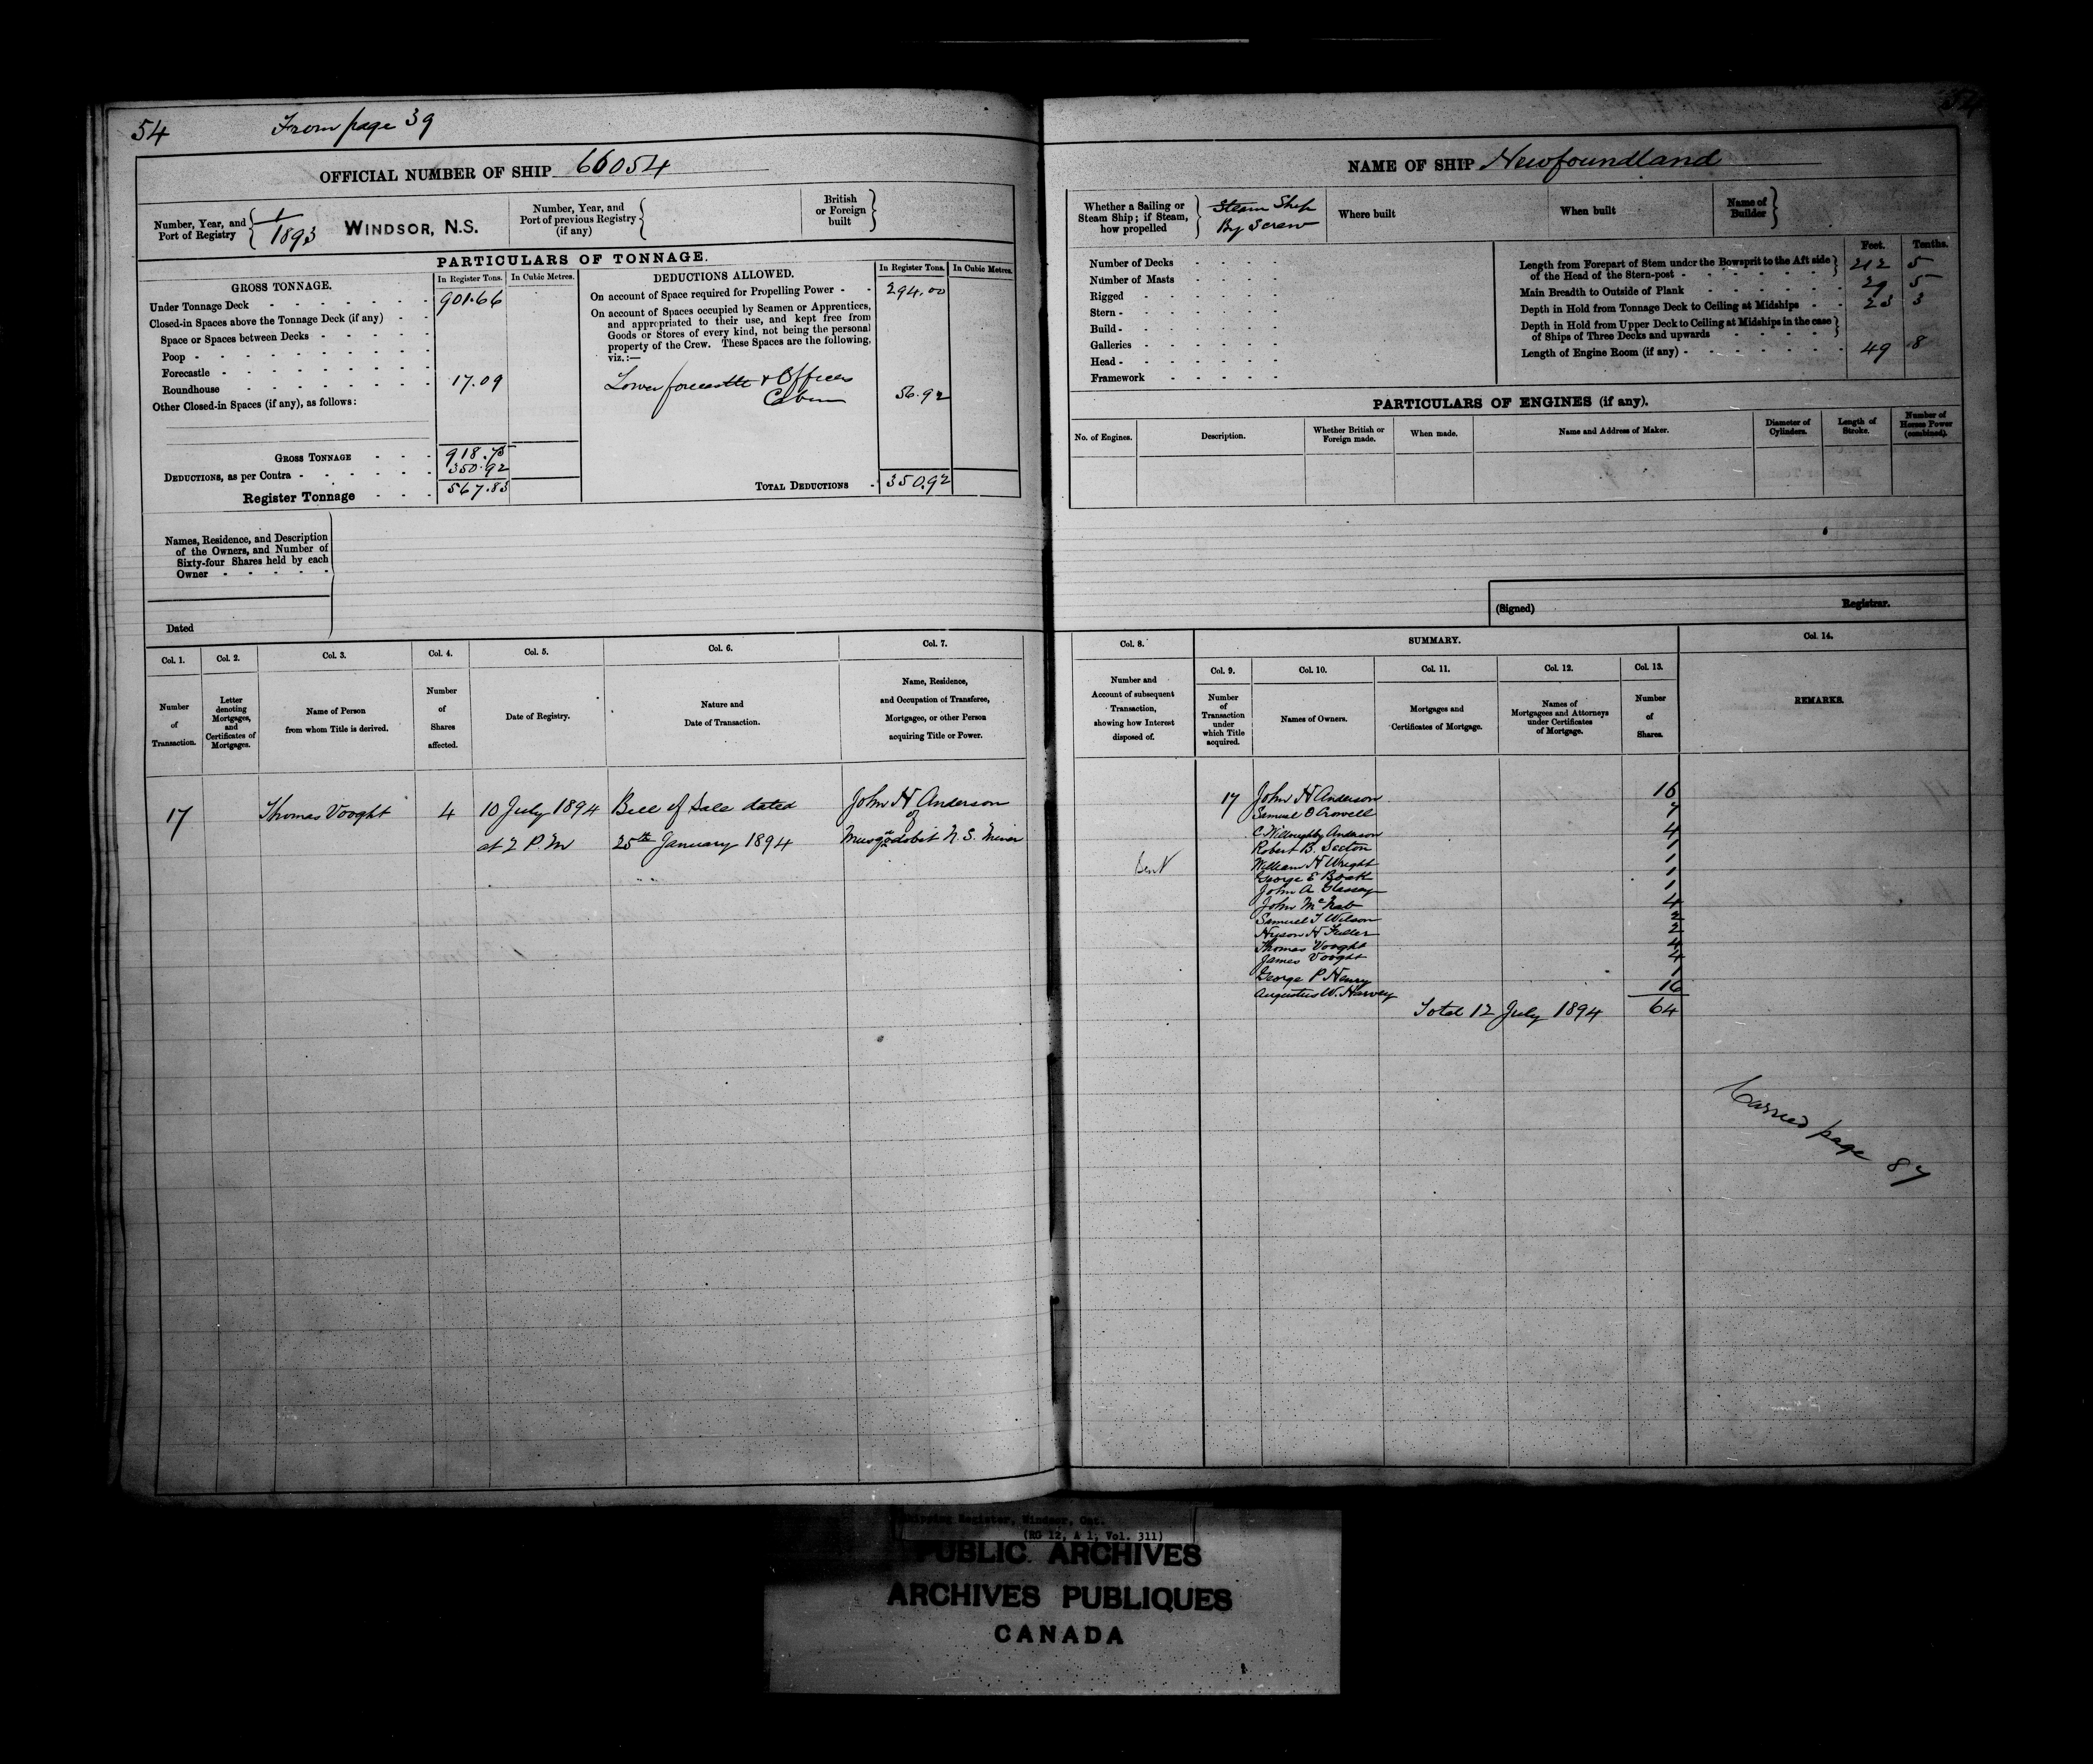 54
From page 39
OFFICIAL NUMBER OF SHIP 66054
Number, Year, and
Port of Registry
1
1893
WINDSOR, N.S.
Number, Year, and
Port of previous Registry
(if any)
British
or Foreign
built
PARTICULARS OF TONNAGE.
GROSS TONNAGE.
In Register Tons.
In Cubic Metres.
Under Tonnage Deck 901.66
Closed-in Spaces above the Tonnage Deck (if any)
Space or Spaces between Decks
Poop
Forecastle
Roundhouse 17.09
Other Closed-in Spaces (if any), as follows:
GROSS TONNAGE 918.75
DEDUCTIONS, as per Contra 350.92
Register Tonnage 567.83
DEDUCTIONS ALLOWED.
In Register Tons.
In Cubic Metres.
On account of Space required for Propelling Power 294.00
On account of Spaces occupied by Seamen or Apprentices,
and appropriated to their use, and kept free from
Goods or Stores of every kind, not being the personal
property of the Crew. These Spaces are the following,
viz.:—
Lower forecastle & Officers
Cabin 56.92
TOTAL DEDUCTIONS 350.92
Names, Residence, and Description
of the Owners, and Number of
Sixty-four Shares held by each
Owner
Dated
Col. 1.
Col. 2.
Col. 3.
Col. 4.
Col. 5.
Col. 6.
Col. 7.
Number
of
Transaction.
Letter
denoting
Mortgages,
and
Certificates of
Mortgages.
Name of Person
from whom Title is derived.
Number
of
Shares
affected.
Date of Registry.
Nature and
Date of Transaction.
Name, Residence,
and Occupation of Transferee,
Mortgagee, or other Person
acquiring Title or Power.
17 Thomas Vooght 4 10 July 1894 Bill of Sale dated John H Anderson
of
at 2 P.M 25th January 1894 Musquodobit N.S. Miner
NAME OF SHIP Newfoundland
Whether a Sailing or
Steam Ship; if Steam,
how propelled
Steam Ship
By Screw
Where built
When built
Name of
Builder
Number of Decks
Number of Masts
Rigged
Stern
Build
Galleries
Head
Framework
Feet.
Tenths.
Length from Forepart of Stem under the Bowsprit to the Aft side
of the Head of the Stern-post 212 5
Main Breadth to Outside of Plank 29 5
Depth in Hold from Tonnage Deck to Ceiling at Midships 23 3
Depth in Hold from Upper Deck to Ceiling at Midships in the case
of Ships of Three Decks and upwards
Length of Engine Room (if any) 49 8
PARTICULARS OF ENGINES (if any).
No. of Engines.
Description.
Whether British or
Foreign made.
When made.
Name and Address of Maker.
Diameter of
Cylinders.
Length of
Stroke.
Number of
Horses Power
(combined).
(Signed) Registrar.
Col. 8.
SUMMARY.
Col. 14.
Col. 9.
Col. 10.
Col. 11.
Col. 12.
Col. 13.
Number and
Account of subsequent
Transaction,
showing how Interest
disposed of.
Number
of
Transaction
under
which Title
acquired.
Names of Owners.
Mortgages and
Certificates of Mortgage.
Names of
Mortgagees and Attorneys
under Certificates
of Mortgage.
Number
of
Shares.
REMARKS.
17 John H Anderson 16
Samuel O Crowell 7
C Willoughby Anderson 4
Robert B. Seeton 1
William H Wright 1
George E Boak 1
John A Glassey 1
John McNab 4
Samuel T Wilson 2
Hyson H Fuller 2
Thomas Vooght 4
James Vooght 4
George P Henry 1
Augustus W. Harvey 16
Total 12 July 1894 64
Sent
Carried page 87
Shipping Register, Windsor, Ont.
(RG 12, A 1, Vol. 311)
PUBLIC ARCHIVES
ARCHIVES PUBLIQUES
CANADA